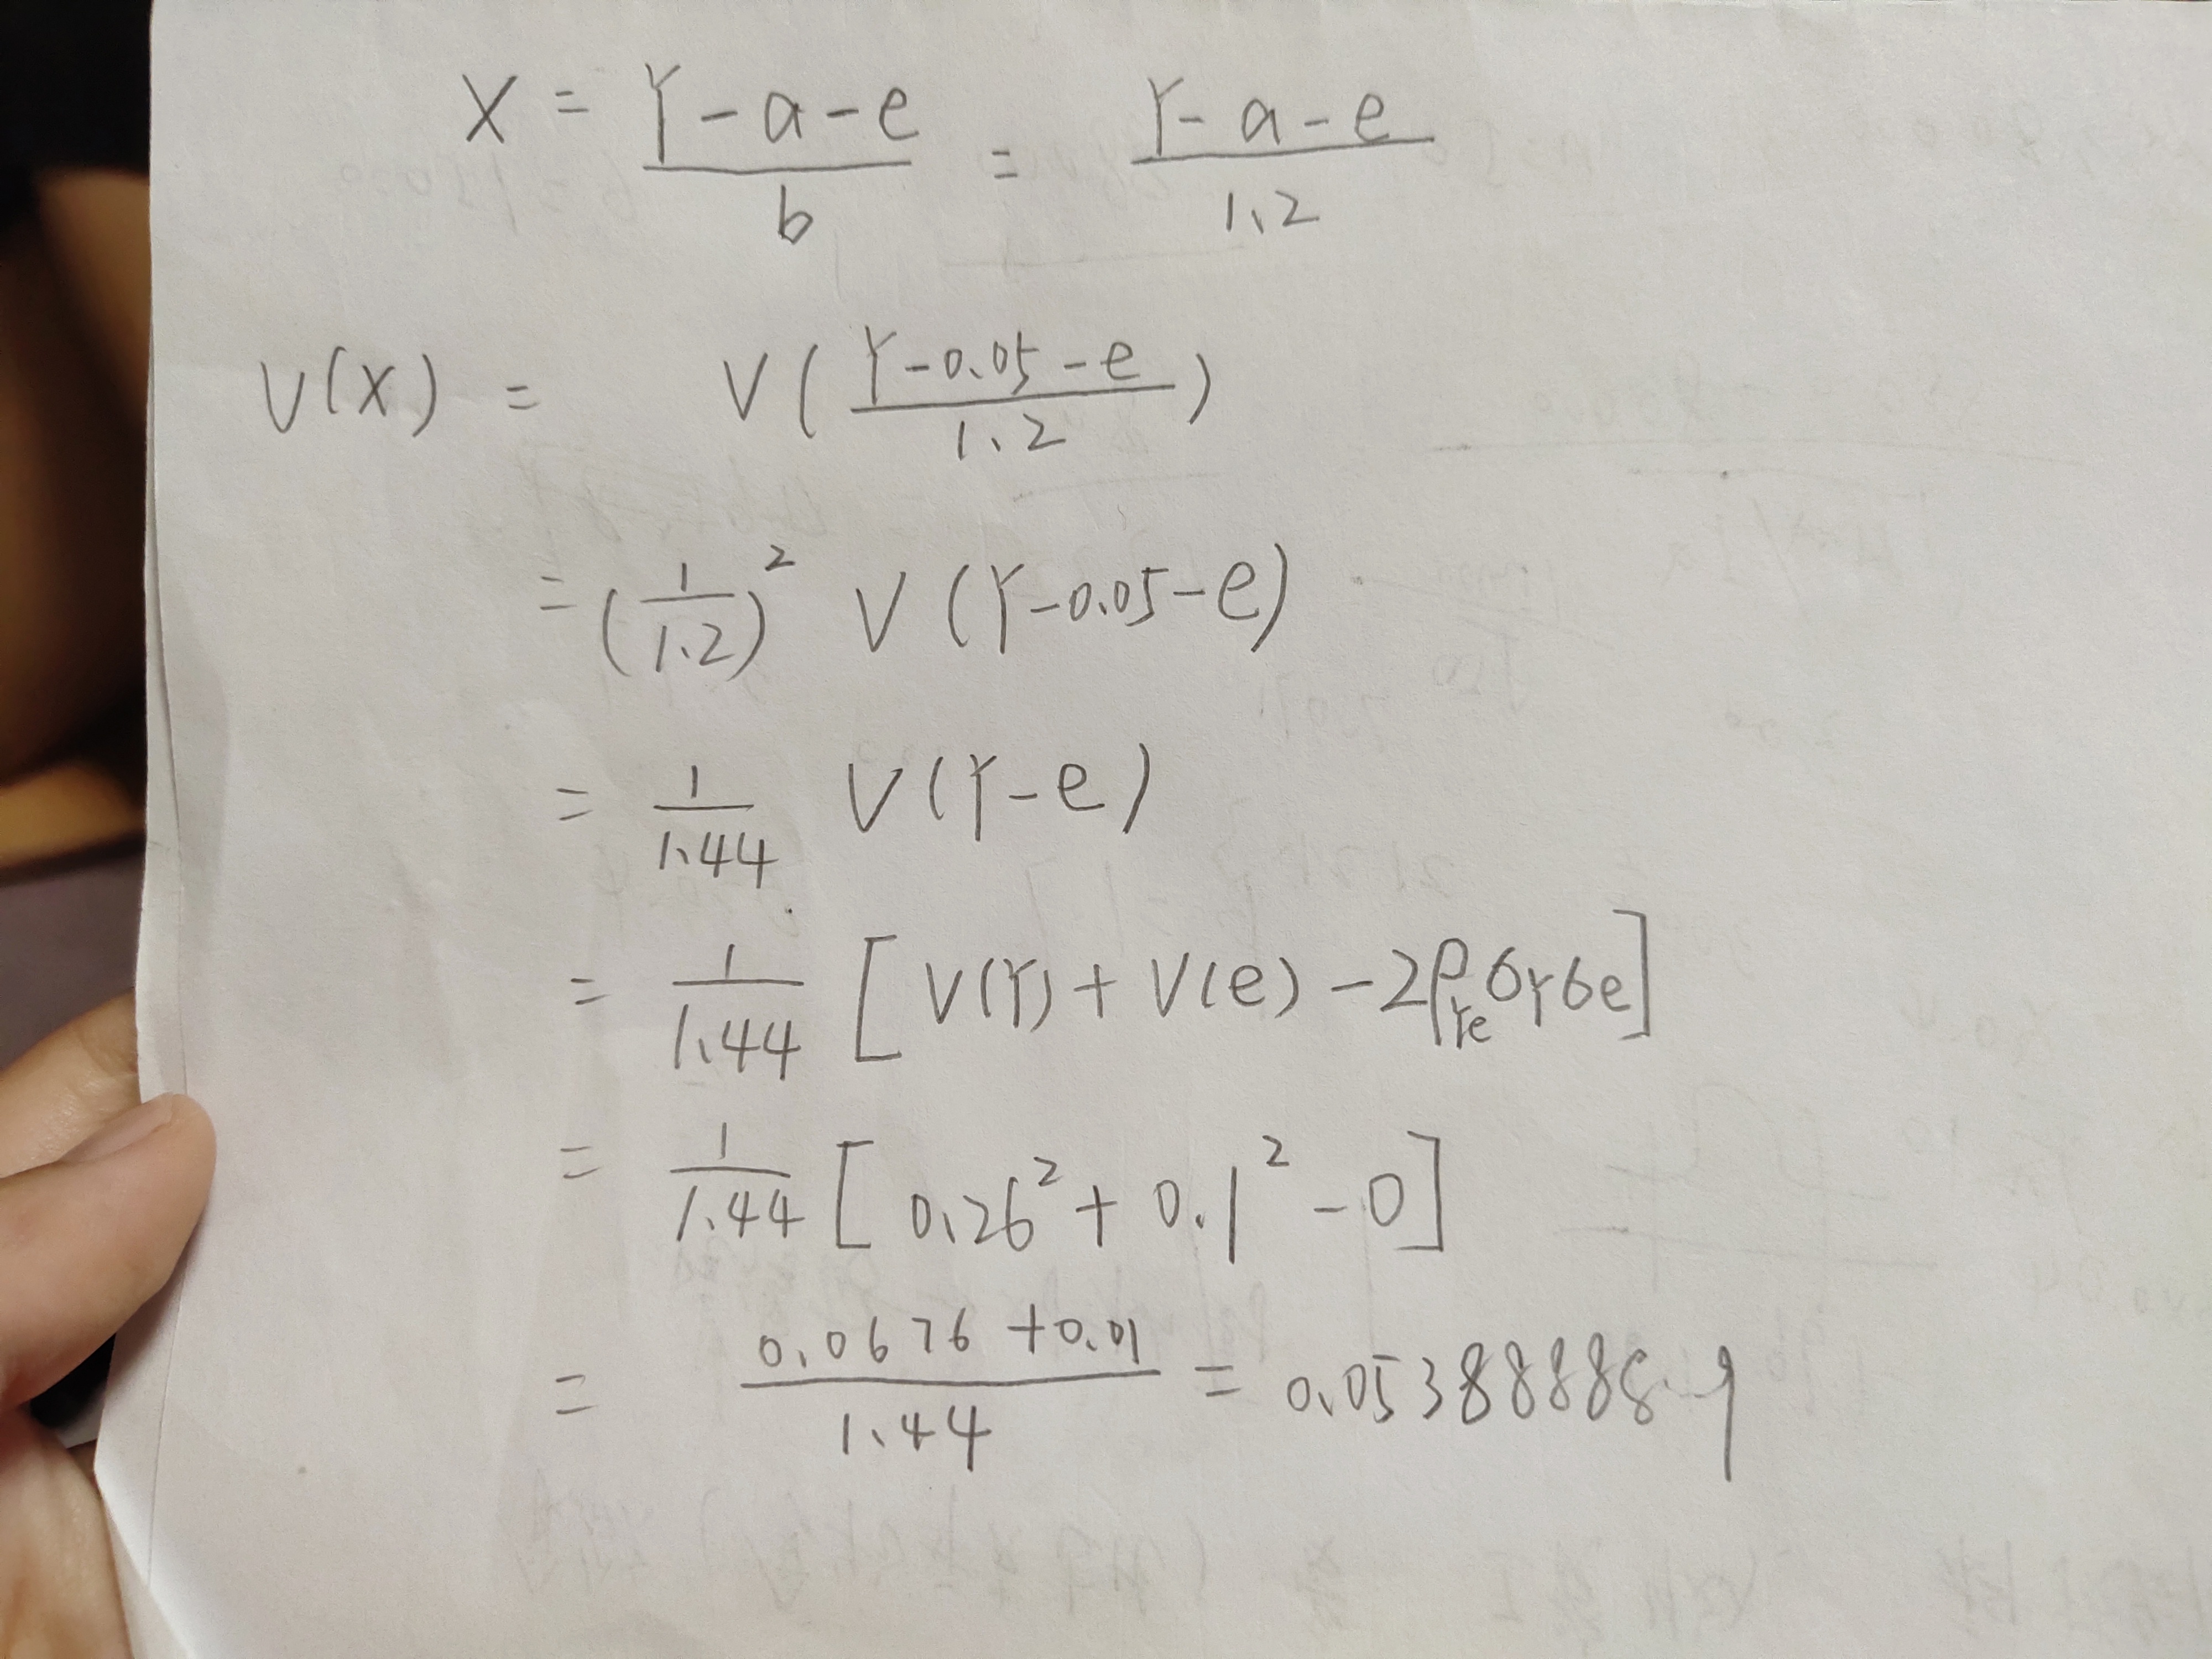 X = \frac{Y-a-e}{b} = \frac{Y-a-e}{1.2}
V(X) = V(\frac{Y-0.05-e}{1.2})
= (\frac{1}{1.2})^2 V(Y-0.05-e)
= \frac{1}{1.44} V(Y-e)
= \frac{1}{1.44} [V(Y)+V(e)-2ρ_{Ye}σ_Yσ_e]
= \frac{1}{1.44} [0.26^2+0.1^2-0]
= \frac{0.0676+0.01}{1.44} = 0.053888889